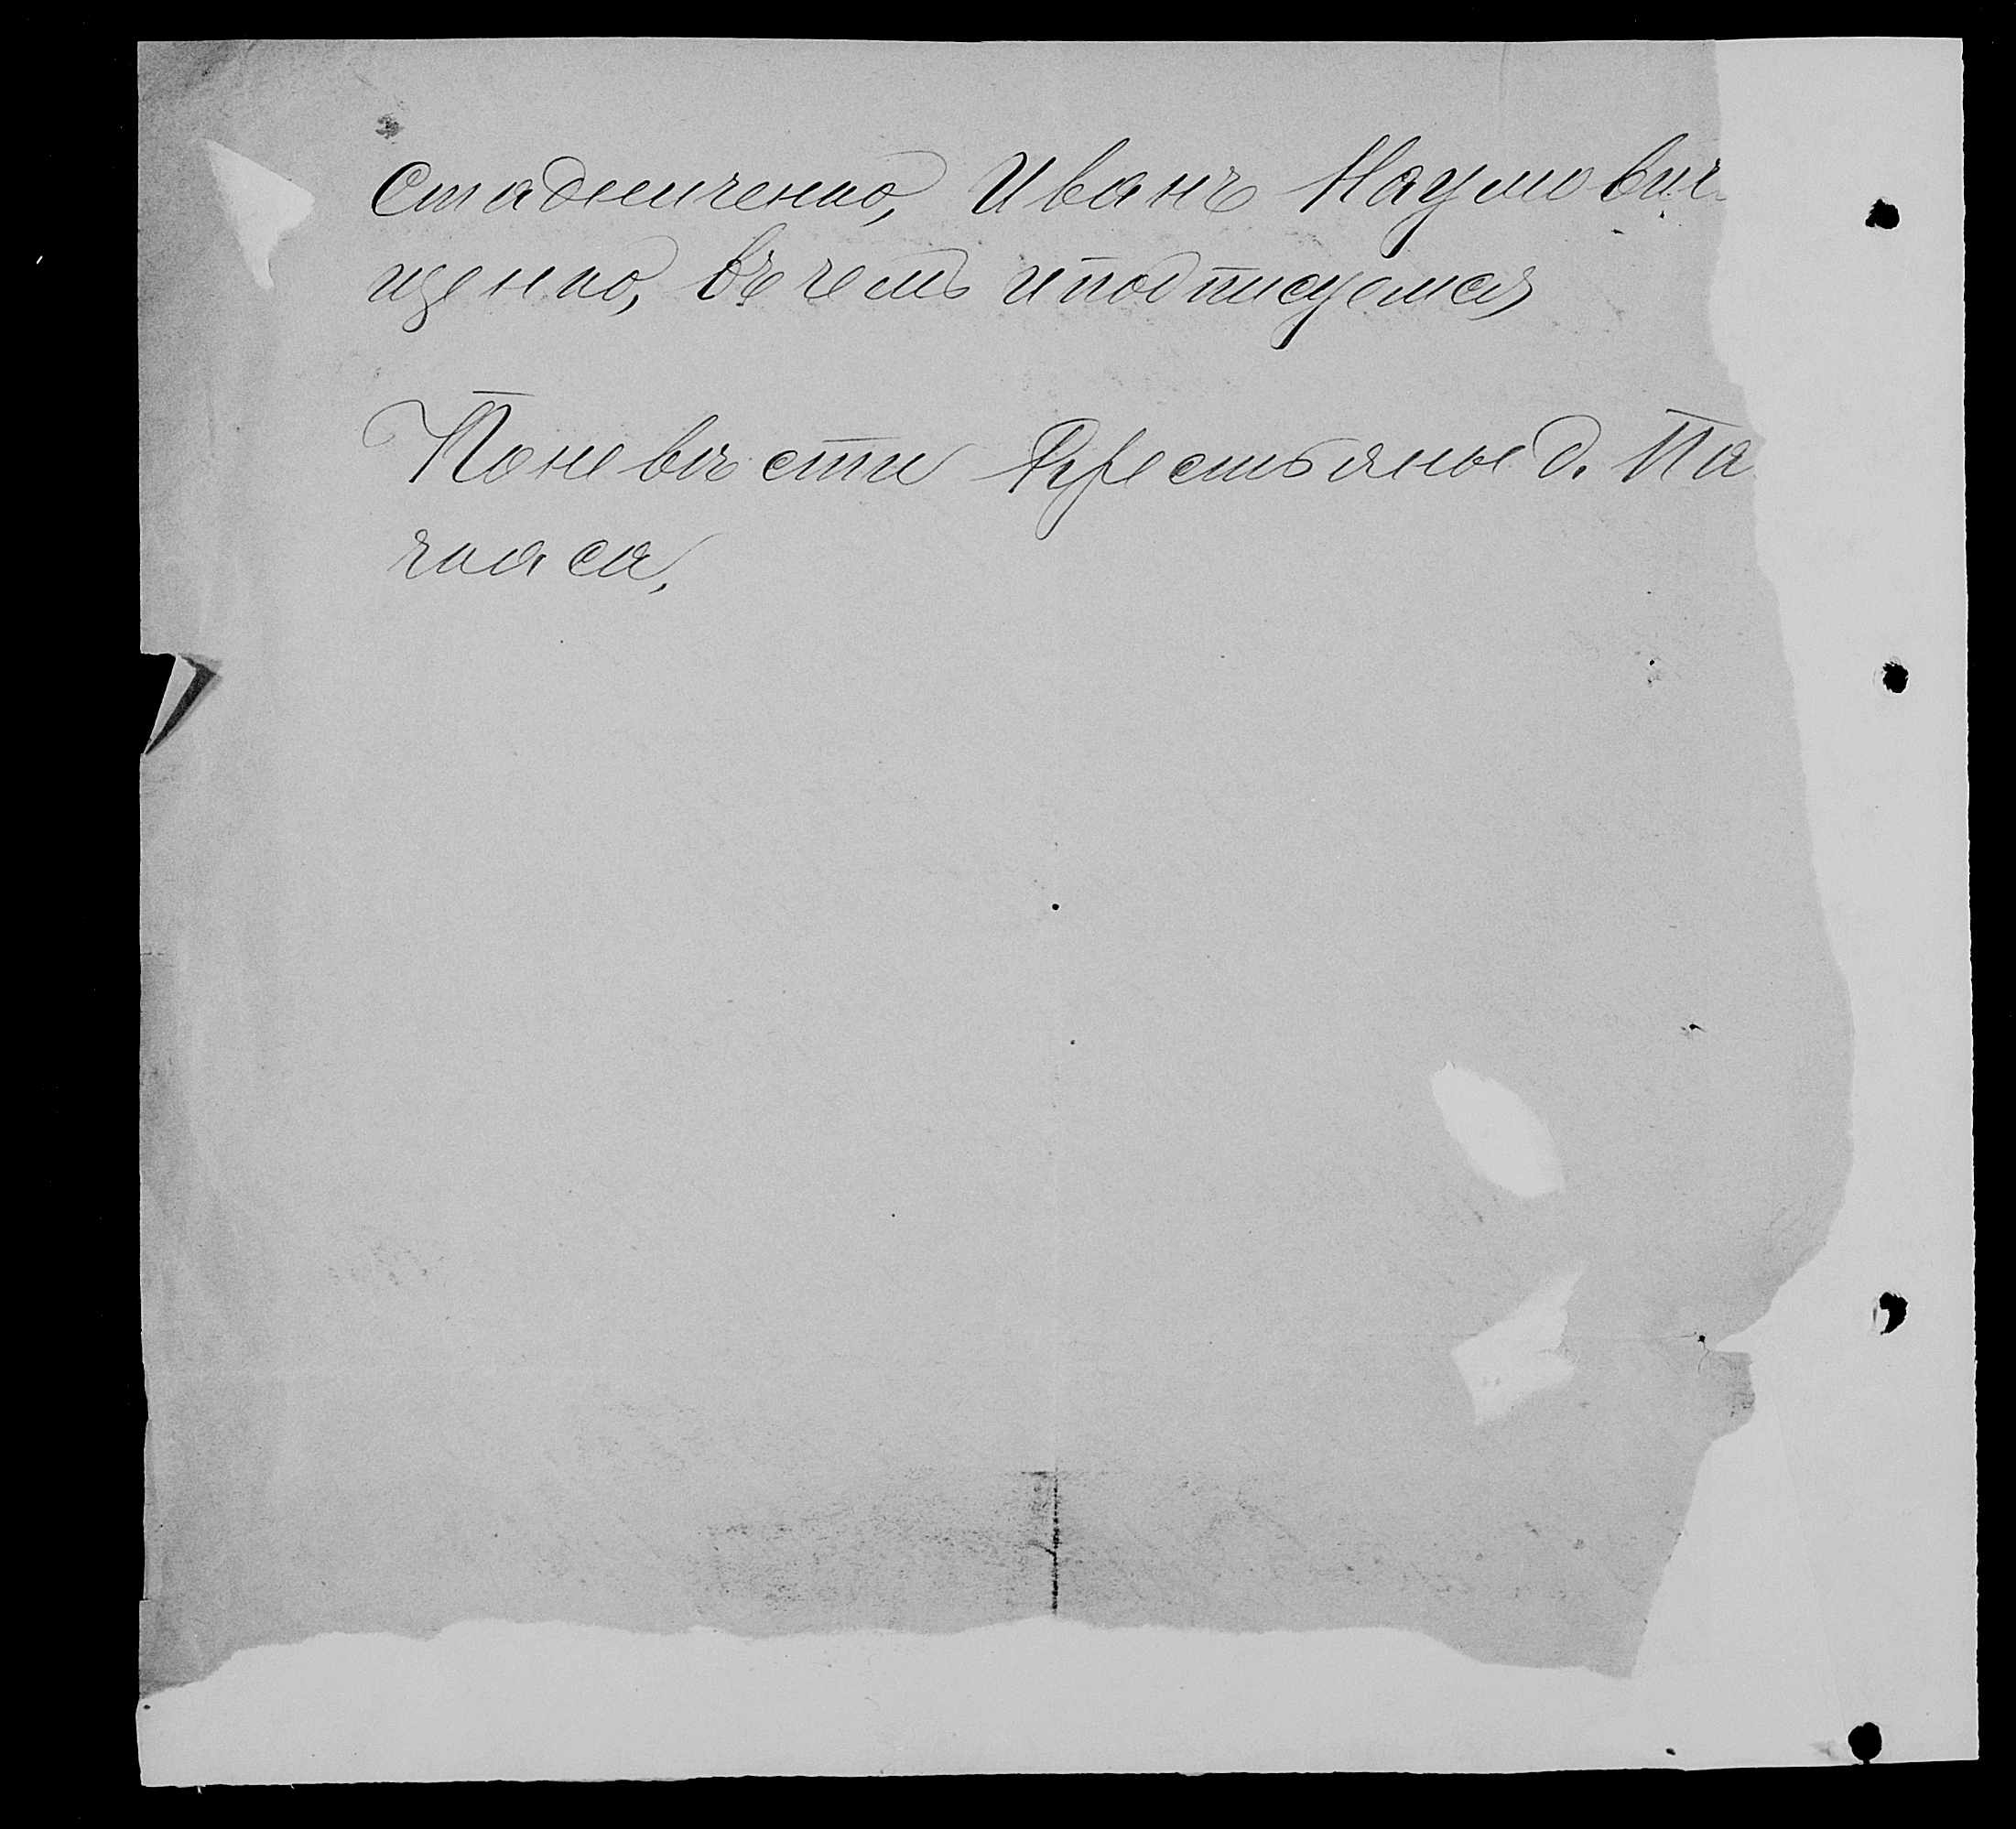 Стадниченко, Иванъ Наумович
щенко, въ чемъ и подписуемся
Поневѣсти Крестьяне д. Па
часа,